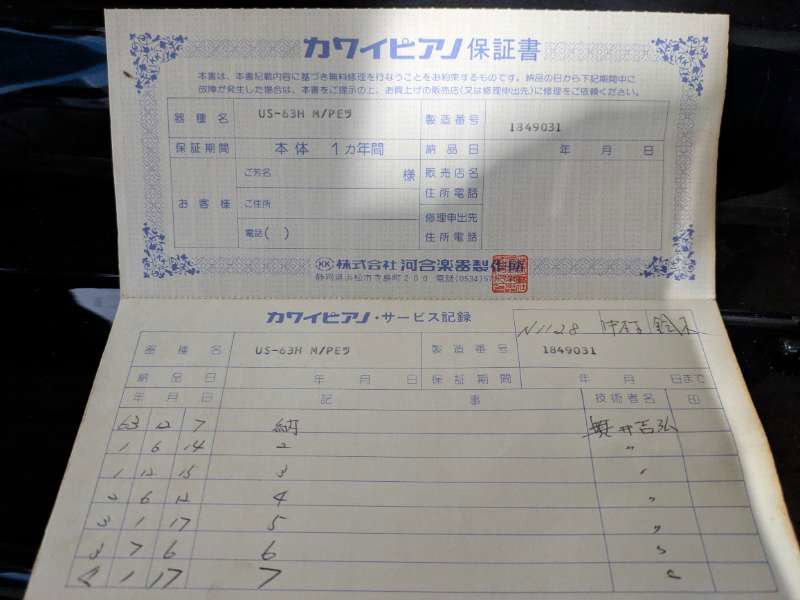 カワイピアノ 保証書
本書は、本書記載内容に基づき無料修理を行なうことをお約束するものです。納品の日から下記期間中に
故障が発生した場合は、本書をご提示の上、お買上げの販売店(又は修理申出先)に修理をご依頼ください。
器種名 US-63H M/PEラ 製造番号 1849031
保証期間 本体 1カ年間 納品日 年 月 日
お客様 ご芳名 様 販売店名 住所電話
ご住所
電話( ) 修理申出先 住所電話
KK 株式会社 河合楽器製作所
静岡県浜松市寺島町200 電話(0534)
カワイピアノ・サービス記録
N1128
器種名 US-63H M/PEラ 製造番号 1849031
納品日 年 月 日 保証期間 年 月 日まで
年 月 日 記 事 技術者名 印
63 12 7 納 吉弘
1 6 14 2 〃
1 12 15 3 〃
2 6 12 4 〃
3 1 17 5 〃
3 7 6 6 〃
4 1 17 7 〃